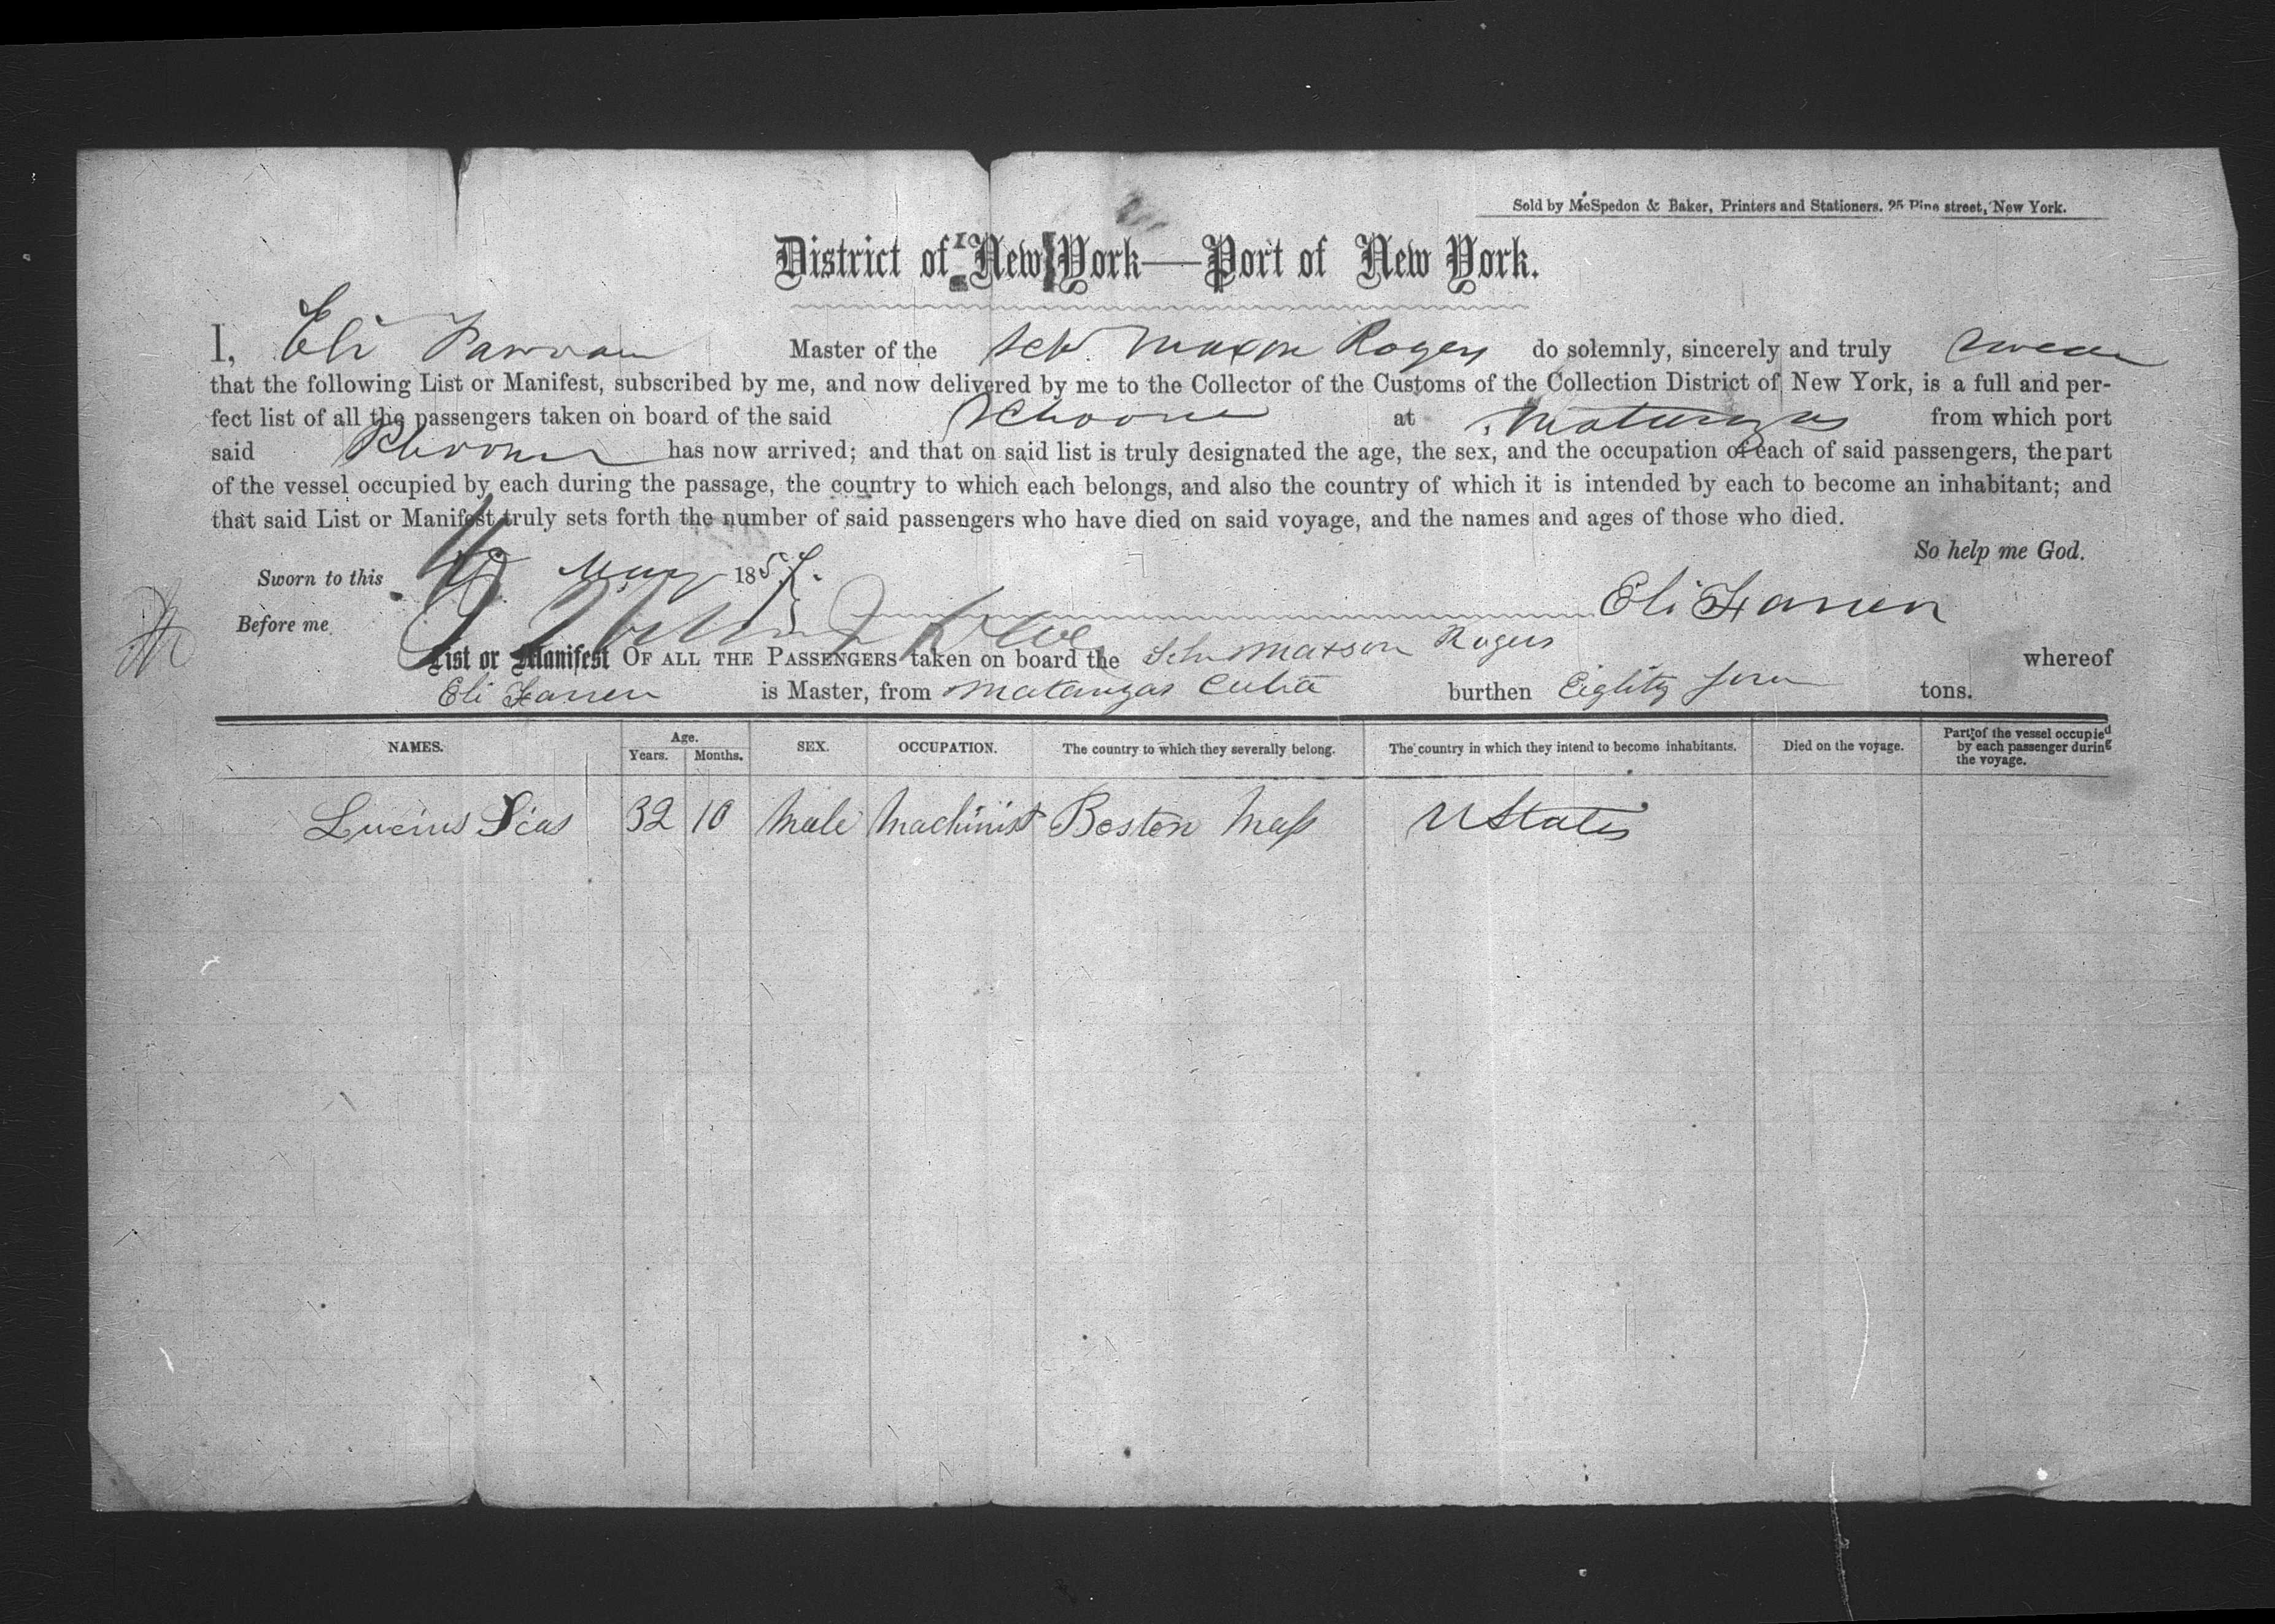 Sold by McSpedon & Baker, Printers and Stationers. 25 Pine street, New York.
District of New York—Port of New York.
I, Eli Farran Master of the Sch. Maxson Rogers do solemnly, sincerely and truly swear
that the following List or Manifest, subscribed by me, and now delivered by me to the Collector of the Customs of the Collection District of New York, is a full and per-
fect list of all the passengers taken on board of the said Schooner at Matanzas from which port
said Schooner has now arrived; and that on said list is truly designated the age, the sex, and the occupation of each of said passengers, the part
of the vessel occupied by each during the passage, the country to which each belongs, and also the country of which it is intended by each to become an inhabitant; and
that said List or Manifest truly sets forth the number of said passengers who have died on said voyage, and the names and ages of those who died.
So help me God.
Sworn to this May 1857.
Before me Eli Farren
List or Manifest OF ALL THE PASSENGERS taken on board the Schr Maxson Rogers whereof
Eli Farren is Master, from Matanzas Cuba burthen Eighty tons.
NAMES. Age. Years. Months. SEX. OCCUPATION. The country to which they severally belong. The country in which they intend to become inhabitants. Died on the voyage. Part of the vessel occupied by each passenger during the voyage.
Lucius Sias 32 10 Male Machinist Boston Mass U States